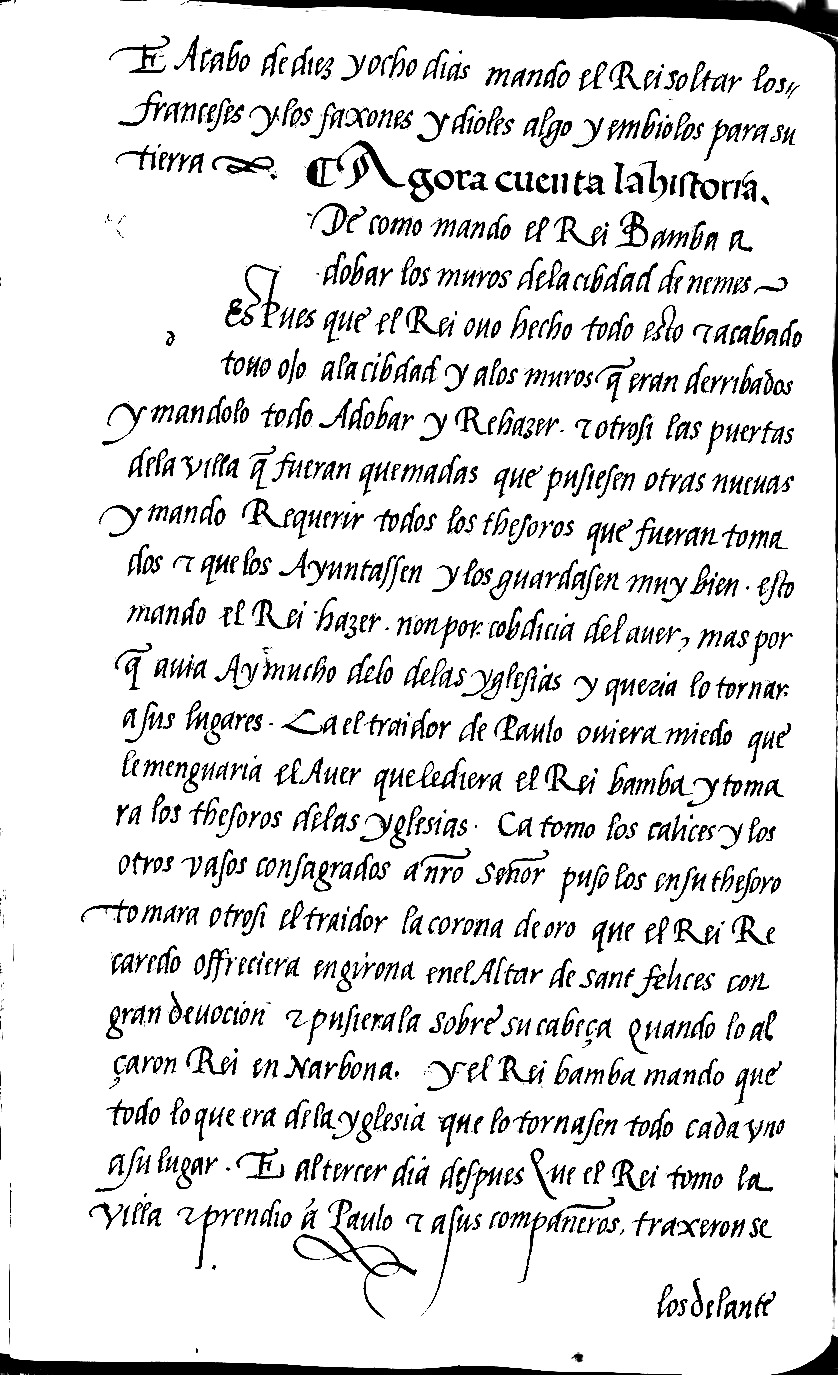 E Acabo de diez y ocho dias mando el Rei soltar los
franceses y los saxones y dioles algo y embiolos para su
tierra
¶ Agora cuenta la historia.
De como mando el Rei Bamba a
dobar los muros dela cibdad de nemes
d
Espues que el Rei ouo hecho todo esto ⁊ acabado
touo ojo ala cibdad y alos muros q̃ eran derribados
y mandolo todo Adobar y Rehazer. ⁊ otrosi las puertas
dela villa q̃ fueran quemadas que pusiesen otras nueuas
y mando Requerir todos los thesoros que fueran toma
dos ⁊ que los Ayuntassen y los guardasen muy bien. esto
mando el Rei hazer. non por cobdicia del auer, mas por
q̃ auia Ay mucho delo delas yglesias y queria lo tornar
a sus lugares. Ca el traidor de Paulo ouiera miedo que
le menguaria el Auer que le diera el Rei bamba y toma
ra los thesoros delas yglesias. Ca tomo los calices y los
otros vasos consagrados a nr̃o Señor puso los en su thesoro
tomara otrosi el traidor la corona de oro que el Rei Re
caredo offreciera en girona en el Altar de sant felices con
gran deuocion ⁊ pusierala sobre su cabeça quando lo al
çaron Rei en Narbona. y el Rei bamba mando que
todo lo que era dela yglesia que lo tornasen todo cada vno
a su lugar. E al tercer dia despues que el Rei tomo la
villa ⁊ prendio á Paulo ⁊ a sus compañeros, traxeron se
los delante